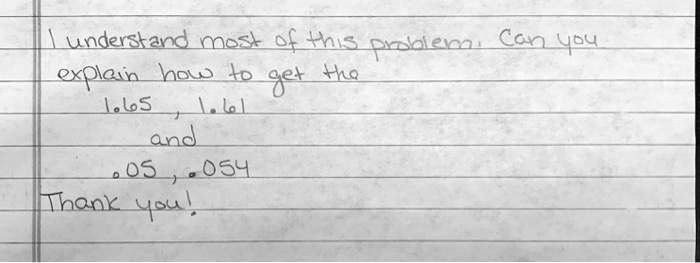 I understand most of this problem. Can you
explain how to get the
1.65 , 1.61
and
.05 , .054
Thank you!